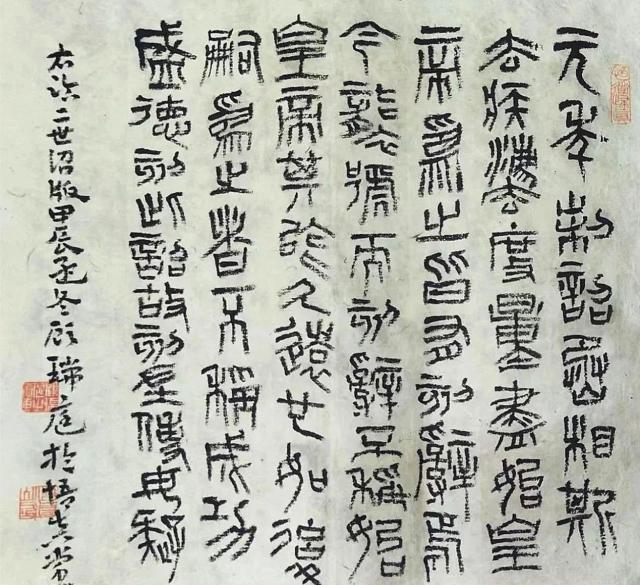 元年制詔丞相斯
去疾灋度量盡始皇
帝為之皆有刻辭焉
今襲號而刻辭不稱始
皇帝其於久遠也如後
嗣為之者不稱成功
盛德刻此詔故刻左使毋疑
右臨二世詔版甲辰孟冬顾瑞庭於悟